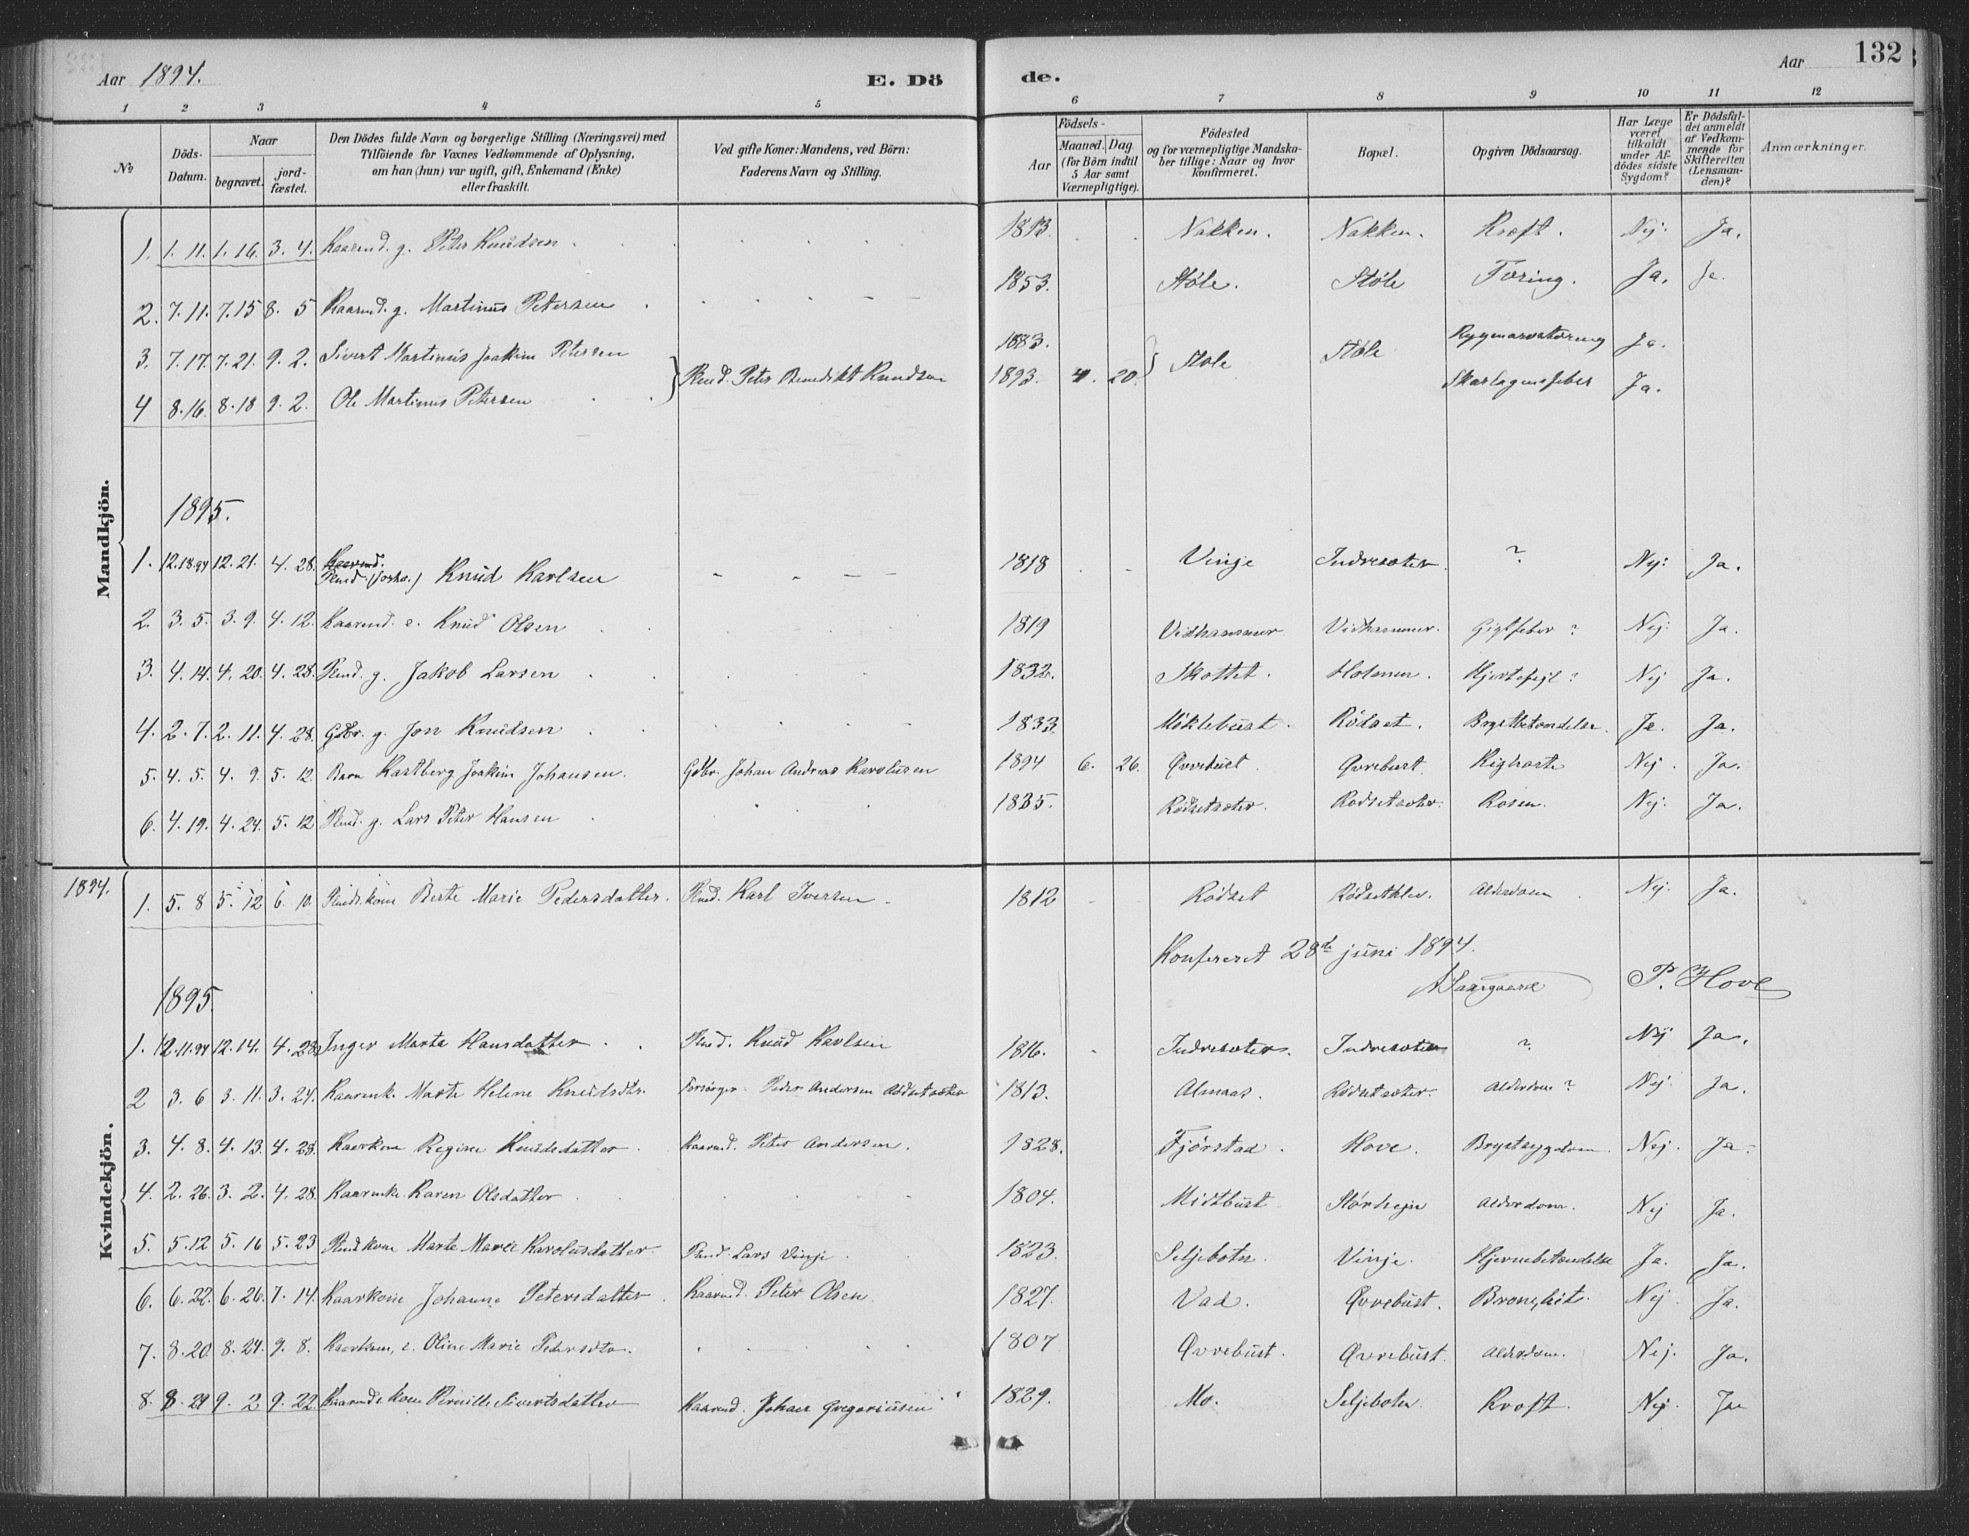 Aar 1894. E. Dö de. Aar 132
1 2 3 4 5 6 7 8 9 10 11 12
No Döds-Datum. Naar begravet. jordfæstet. Den Dödes fulde Navn og borgerlige Stilling (Næringsvei) med Tilföiende for Voxnes Vedkommende af Oplysning, om han (hun) var ugift, gift, Enkemand (Enke) eller fraskilt. Ved gifte Koner: Mandens, ved Börn: Faderens Navn og Stilling. Födsels- Aar Maaned. Dag (for Börn indtil 5 Aar samt Værnepligtige). Födested og for værnepligtige Mandskaber tillige: Naar og hvor konfirmeret. Bopæl. Opgiven Dödsaarsag. Har Læge været tilkaldt under Afdödes sidste Sygdom? Er Dödsfaldet anmeldt af Vedkommende for Skifteretten (Lensmanden)? Anmærkninger.
Mandkjön.
1. 1. 11. 1. 16. 3. 4. Kaarmd. g. Peter Knudsen Nakken. Nakken. Kræft. Nej. Ja.
2. 7. 11. 7. 15 8. 5 Kaarmd. g. Martinus Petersen 1853. Støle. Støle Tæring. Ja. Ja.
3. 7. 17. 7. 21. 9. 2. Sivert Martinus Joakim Petersen 1883. Støle Støle Rygmarvstæring Ja.
4 8. 16. 8. 18 9. 2. Ole Martinus Petersen Plmd. Peter Benedikt Knudsen 1893. 4. 20. Skarlagensfeber Ja.
1895.
1. 12. 18. 94 12. 21. 4. 28. Kaarmd. Knud Karlsen 1818 Vinje Indresæter ? Nej. Ja.
2. 3. 5. 3. 9. 4. 12. Kaarmd. e. Knud Olsen 1819 Vidhammer Vidhammer. Gigtfeber ? Nej. Ja.
3. 4. 14. 4. 20. 4. 28. Plmd. g. Jakob Larsen 1832. Skottet. Holmen. Hjertefejl ? Nej Ja.
4. 2. 7. 2. 11. 4. 28. Gdbr. g. Jon Knudsen 1833. Møklebust. Rødset. Brystbetændelse. Ja. Ja.
5. 4. 5. 4. 9. 5. 12. Barn Kastberg Joakim Johansen. Gdbr. Johan Andreas Karolusen 1894 6. 26. Øvrebust. Øvrebust. Kighoste Nej. Ja.
6. 4. 19. 4. 24. 5. 12 Plmd. g. Lars Peter Hansen 1835. Rødsetsæter. Rødsetsæter. Rosen. Nej. Ja.
Kvindekjön.
1894. 1. 5. 8 5. 12 6. 10. Plmdskone Berte Marie Pedersdatter. Plmd. Karl Iversen. 1812 Rødset Rødsetklev. Alderdom Nej. Ja.
Konfereret 28de juni 1894.
P. Hove
1895.
1. 12. 11. 94 12. 14. 4. 28. Inger Marta Hansdatter. Plmd. Knud Karlsen 1816. Indresæter. Indresæter ? Nej Ja.
2 3. 6 3. 11. 3. 24. Kaarenk. Marte Helene Knudsdtr. Forsørger. Peder Andersen Rødsetsæter 1813. Almaas. Rødsetsæter. Alderdom ? Nej. Ja.
3. 4. 8. 4. 13. 4. 28. Kaarkone Regine Knudsdatter Kaarmd. Peter Andersen. 1828. Fjørstad. Hove. Brystsygdom Nej. Ja.
4. 2. 26. 3. 2. 4. 28. Kaarenke Karen Olsdatter 1804. Midtbust Størhejn Alderdom. Nej Ja.
5. 5. 12 5. 16 5. 23 Plmdkone Marte Marie Karolusdatter. Plmd. Lars Vinje 1823. Seljebotn. Vinje. Hjernebetændelse Ja. Ja.
6. 6. 22. 6. 26. 7. 14 Kaarkone Johanne Petersdatter. Kaarmd. Peter Olsen. 1827. Vad. Øvrebust. Bronchit. Nej. Ja.
7. 8. 20. 8. 24. 9. 8. Kaarkone, e. Oline Marie Pedersdtr. 1807 Øvrebust. Øvrebust. Alderdom. Nej. Ja.
8. 8. 29 9. 2 9. 22 Kaarmdskone Pernille Sivertsdatter Kaarmd. Johan Gregoriussen 1829. Mo. Seljebotn. Kræft. Nej. Ja